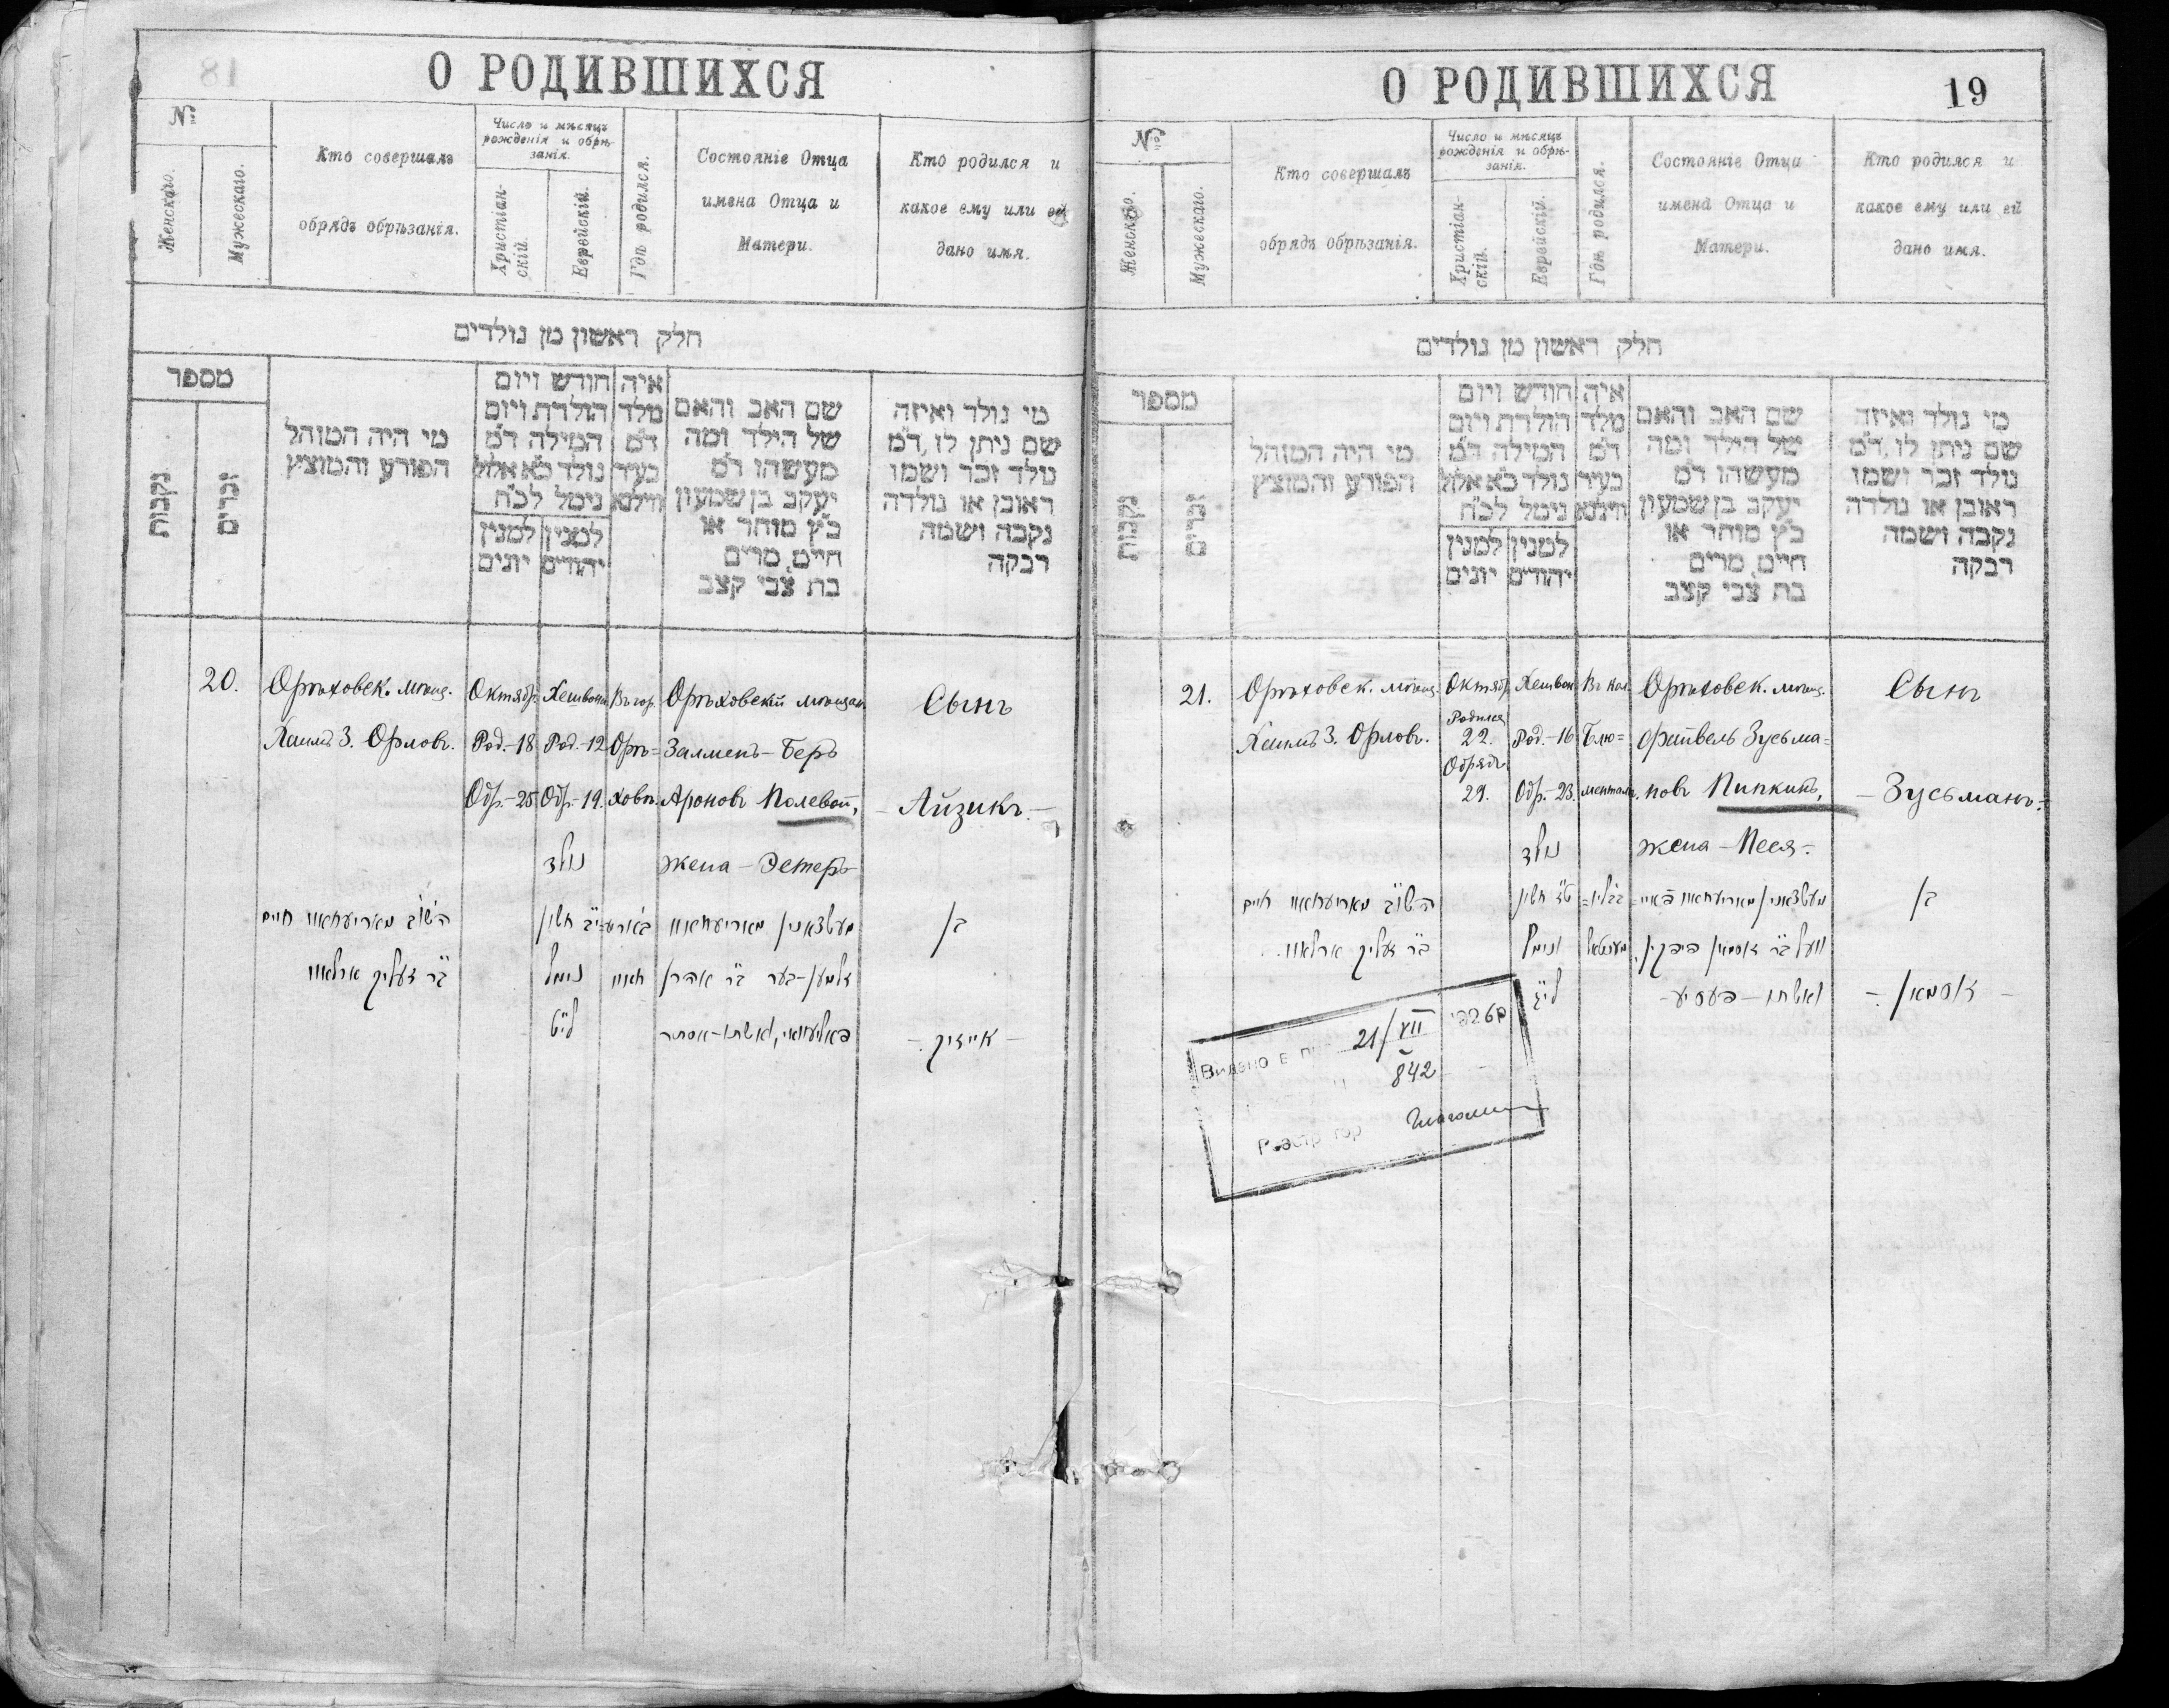 18
О РОДИВШИХСЯ
№
Женскаго.
Мужескаго.
Кто совершалъ
обрядъ обрѣзанія.
Число и мѣсяцъ
рожденія и обрѣ-
занія.
Христіан-
скій.
Еврейскій.
Гдѣ родился.
Состояніе Отца
имена Отца и
Матери.
Кто родился и
какое ему или ей
дано имя.
חלק ראשון מן נולדים
מספר
נקבות
זכרים
מי היה המוהל
הפורע והמוצץ
חודש ויום
הולדת ויום
המילה ד״מ
נולד כ״א אלול
נימל לכ״ח
למנין
יהודים
למנין
יונים
איה
מלד
ד״מ
בעיר
ווילנא
שם האב והאם
של הילד ומה
מעשהו ד״מ
יעקב בן שמעון
כ״ץ סוחר או
חיים, מרים
בת צבי קצב
מי נולד ואיזה
שם ניתן לו, ד״מ
נולד זכר ושמו
ראובן או נולדה
נקבה ושמה
רבקה
20.
Орѣховск. мѣщ.
Хаимъ З. Орловъ.
Октябр.
Род.-18
Обр.-25
Хешвонъ
Род.-12
Обр.-19.
Въ гор.
Орѣ=
ховѣ.
Орѣховскій мѣщан.
Залменъ-Беръ
Ароновъ Полевой,
жена-Эстеръ
Сынъ
-Айзикъ.-
השו״ב מאריעחאוו חיים
ב״ר זעליק ארלאוו
נולד
י״ב חשון
נימל
לי״ט
חאוו
מעשצאנין מאריעחאוו
זלמען-בער ב״ר אהרן
פאליעוואי, ואשתו-אסתר
בן
- אייזיק -
О РОДИВШИХСЯ
19
№
Женскаго.
Мужескаго.
Кто совершалъ
обрядъ обрѣзанія.
Число и мѣсяцъ
рожденія и обрѣ-
занія.
Христіан-
скій.
Еврейскій.
Гдѣ родился.
Состояніе Отца
имена Отца и
Матери.
Кто родился и
какое ему или ей
дано имя.
חלק ראשון מן נולדים
מספר
נקבות
זכרים
מי היה המוהל
הפורע והמוצץ
חודש ויום
הולדת ויום
המילה ד״מ
נולד כ״א אלול
נימל לכ״ח
למנין
יהודים
למנין
יונים
איה
מלד
ד״מ
בעיר
ווילנא
שם האב והאם
של הילד ומה
מעשהו ד״מ
יעקב בן שמעון
כ״ץ סוחר או
חיים, מרים
בת צבי קצב
מי נולד ואיזה
שם ניתן לו, ד״מ
נולד זכר ושמו
ראובן או נולדה
נקבה ושמה
רבקה
21.
Орѣховск. мѣщ.
Хаимъ З. Орловъ.
Октябр.
Родился
22.
Обрядъ
29.
Хешвон
Род.-16
Обр.-23.
Въ кол.
Блю=
менталь.
Орѣховск. мѣщ.
Файвель Зусьма=
новъ Пипкинъ,
жена-Песя-.
Сынъ
-Зусьманъ-.
השו״ב מאריעחאוו חיים
ב״ר זעליק ארלאוו
נולד
ט״ז חשון
ונימל
מעשצאנין מאריעחאוו פאיי=
וועל ב״ר זוסמאן פיפקין,
ואשתו-פעסיע-
בן
- זוסמאן -
Видено в
21/VII
842